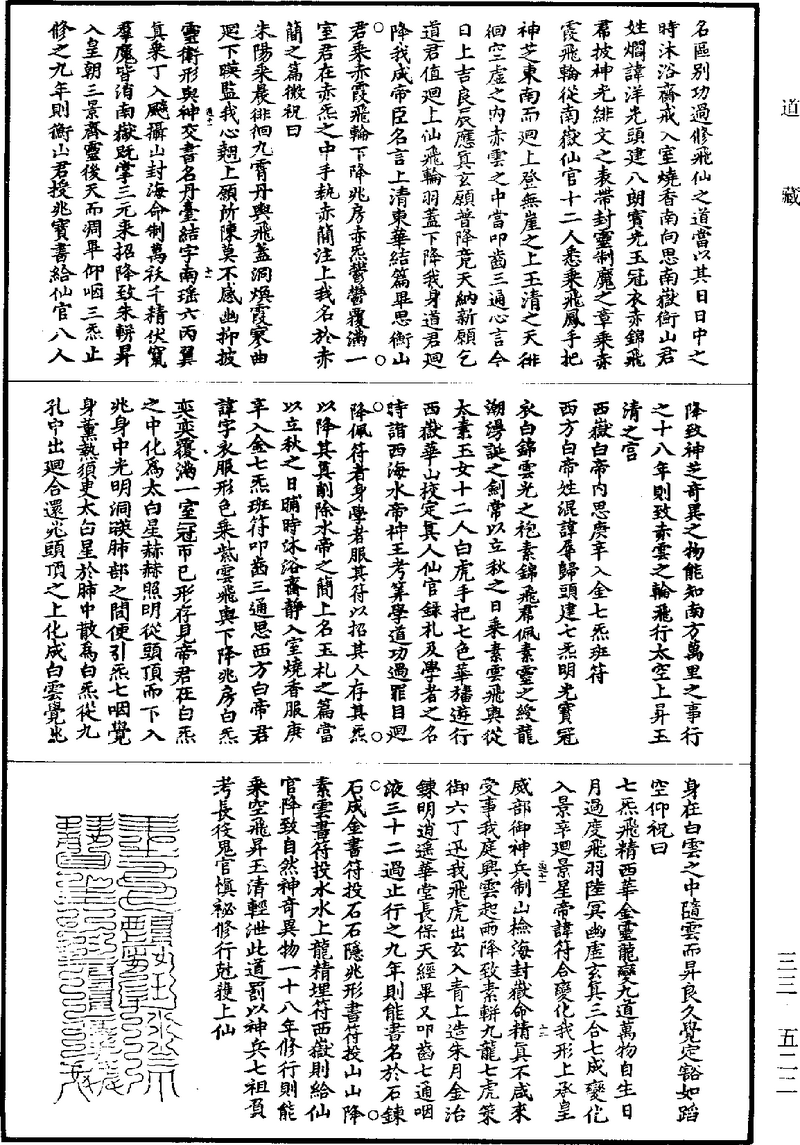 道藏
三三·五二二
名區别功過修飛仙之道當以其日日中之
時沐浴齋戒入室燒香南向思南嶽衡山君
姓爓諱洋光頭建八朗寶光玉冠衣赤錦飛
帬披神光緋文之表帶封靈制魔之章乘赤
霞飛輪從南嶽仙官十二人悉乘飛鳳手把
神芝東南而迴上登無崖之上玉清之天徘
徊空虛之内赤雲之中當叩齒三通心言今
日上吉良辰應真玄願普降竟天納新願乞
道君值迴上仙飛輪羽蓋下降我身道君迴
降我成帝臣名言上清東華結篇畢思衡山
君乘赤霞飛輪下降兆房赤炁鬱鬱覆滿一
室君在赤炁之中手執赤簡注上我名於赤
簡之篇微祝曰
朱陽乘晨徘徊九霄丹輿飛蓋洞煥霞寥曲
迴下暎監我心翹上願所陳莫不感幽抑披
靈衛形與神交書名丹臺結字南瑶六丙翼
真乘丁入飈攝山封海命制萬祆千精伏竄
羣魔皆消南嶽既掌三元來招降致朱軿昇
入皇朝三景齊靈後天而凋畢仰咽三炁止
修之九年則衡山君授兆寶書給仙官八人
降致神芝奇異之物能知南方萬里之事行
之十八年則致赤雲之輪飛行太空上昇玉
清之宫
西嶽白帝内思庚辛入金七炁班符
西方白帝姓混諱蓐歸頭建七炁明光寶冠
衣白錦雲光之袍素錦飛帬佩素靈之綬龍
潮漫誕之劍常以立秋之日乘素雲飛輿從
太素玉女十二人白虎手把七色華旛遊行
西嶽華山校定真人仙官録札及學者之名
時詣西海水帝神王考筭學道功過罪目迴
降佩符者身學者服其符以招其人存其炁
以降其真削除水帝之簡上名玉札之篇當
以立秋之日晡時沐浴齋静入室燒香服庚
辛入金七炁班符叩齒三通思西方白帝君
諱字衣服形色乘紫雲飛輿下降兆房白炁
奕奕覆滿一室冠帀已形存見帝君在白炁
之中化爲太白星赫赫照明從頭頂而下入
兆身中光明洞暎肺部之間便引炁七咽覺
身薰熱須臾太白星於肺中散爲白炁從九
孔中出迴合還兆頭頂之上化成白雲覺兆
身在白雲之中隨雲而昇良久覺定豁如蹈
空仰祝曰
七炁飛精西華金靈龍變九道萬物自生日
月過度飛羽陸冥幽虛玄真三合七成變化
入景辛迴景星帝諱符合變化我形上承皇
威部御神兵制山檢海封嶽命精真不咸來
受事我庭興雲起雨降致素軿九龍七虎策
御六丁迅我飛虎出玄入青上造朱月金治
鍊明逍遥華堂長保天經畢又叩齒七通咽
液三十二過止行之九年則能書名於石鍊
石成金書符投石石隱兆形書符投山山降
素雲書符投水水上龍精埋符西嶽則給仙
官降致自然神奇異物一十八年修行則能
乘空飛昇玉清輕泄此道罰以神兵七祖負
考長役鬼官慎祕修行尅獲上仙